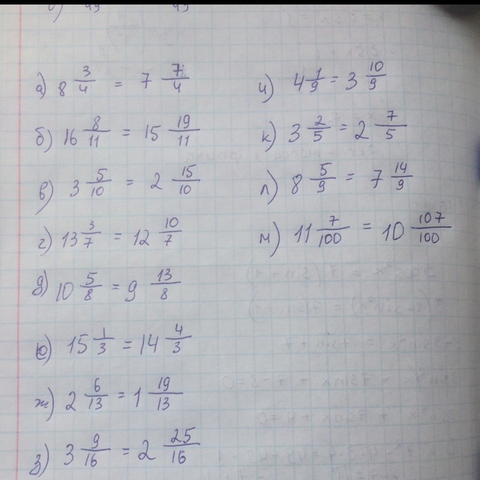 а) 8 3/4 = 7 7/4
б) 16 8/11 = 15 19/11
в) 3 5/10 = 2 15/10
г) 13 3/7 = 12 10/7
д) 10 5/8 = 9 13/8
ю) 15 1/3 = 14 4/3
ж) 2 6/13 = 1 19/13
з) 3 9/16 = 2 25/16
и) 4 1/9 = 3 10/9
к) 3 2/5 = 2 7/5
л) 8 5/9 = 7 14/9
м) 11 7/100 = 10 107/100